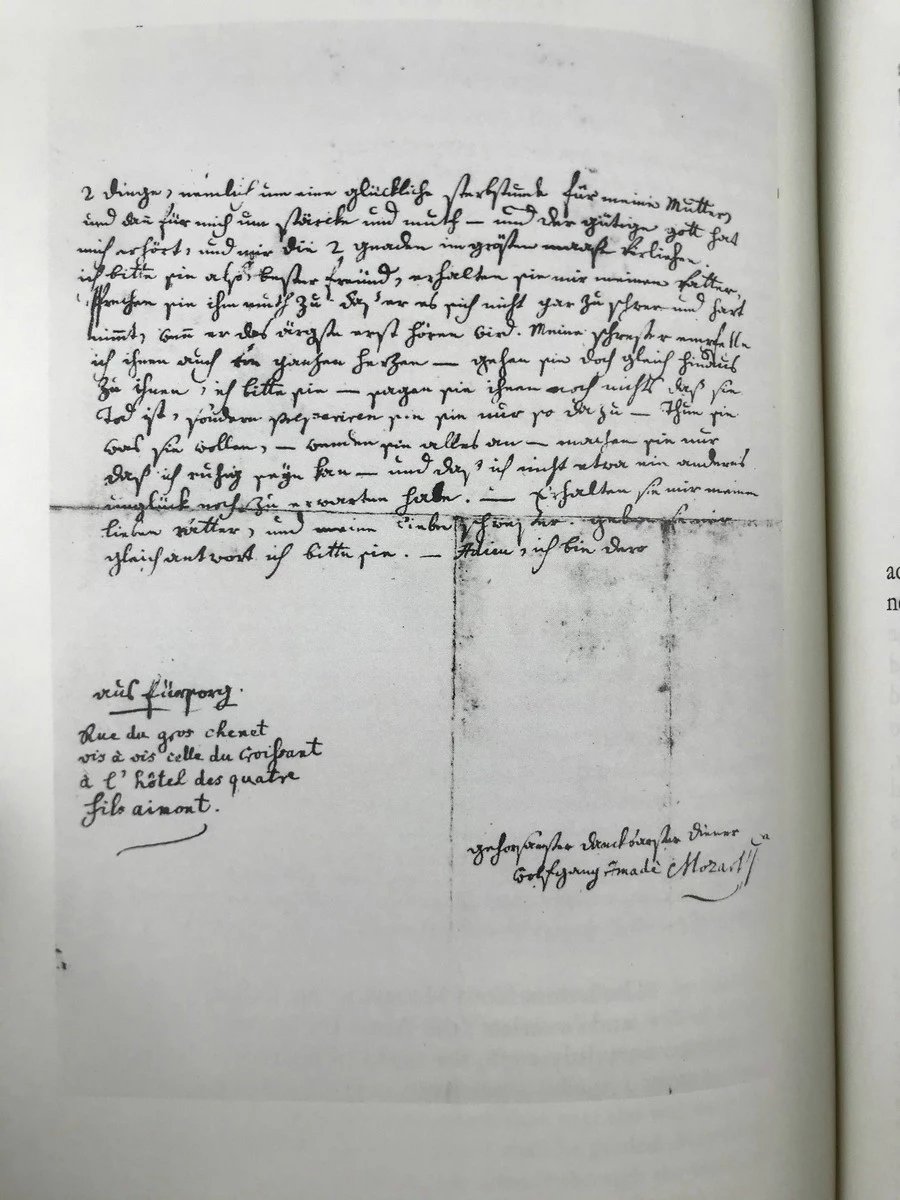 2 dinge, nemlich um eine glückliche sterbstunde für meine Mutter,
und dan für mich um stärcke und muth — und der gütige gott hat
mich erhört, und mir die 2 gnaden im grösten maaße verliehen.
ich bitte sie also, bester freünd, erhalten sie mir meinen vatter,
sprechen sie ihm muth zu daß er es sich nicht gar zu schwer und hart
nimmt, wenn er das ärgste erst hören wird. Meine schwester empfehle
ich ihnen auch von ganzen herzen — gehen sie doch gleich hinaus
zu ihnen, ich bitte sie — sagen sie ihnen noch nichts daß sie
Tod ist, sondern præpariren sie sie nur so dazu — Thun sie
was sie wollen, — wenden sie alles an — machen sie nur
daß ich ruhig seyn kan — und daß ich nicht etwa ein anderes
unglück noch zu erwarten habe. — Erhalten sie mir meinen
lieben vatter, und meine liebe schwester. geben sie mir
gleich antwort ich bitte sie. — Adieu, ich bin dero
aus fürsorg.
Rue du gros chenet
vis à vis celle du Croissant
à l'hôtel des quatre
fils aimont.
gehorsamster danckbarster diener
Wolfgang Amadè Mozart
ac